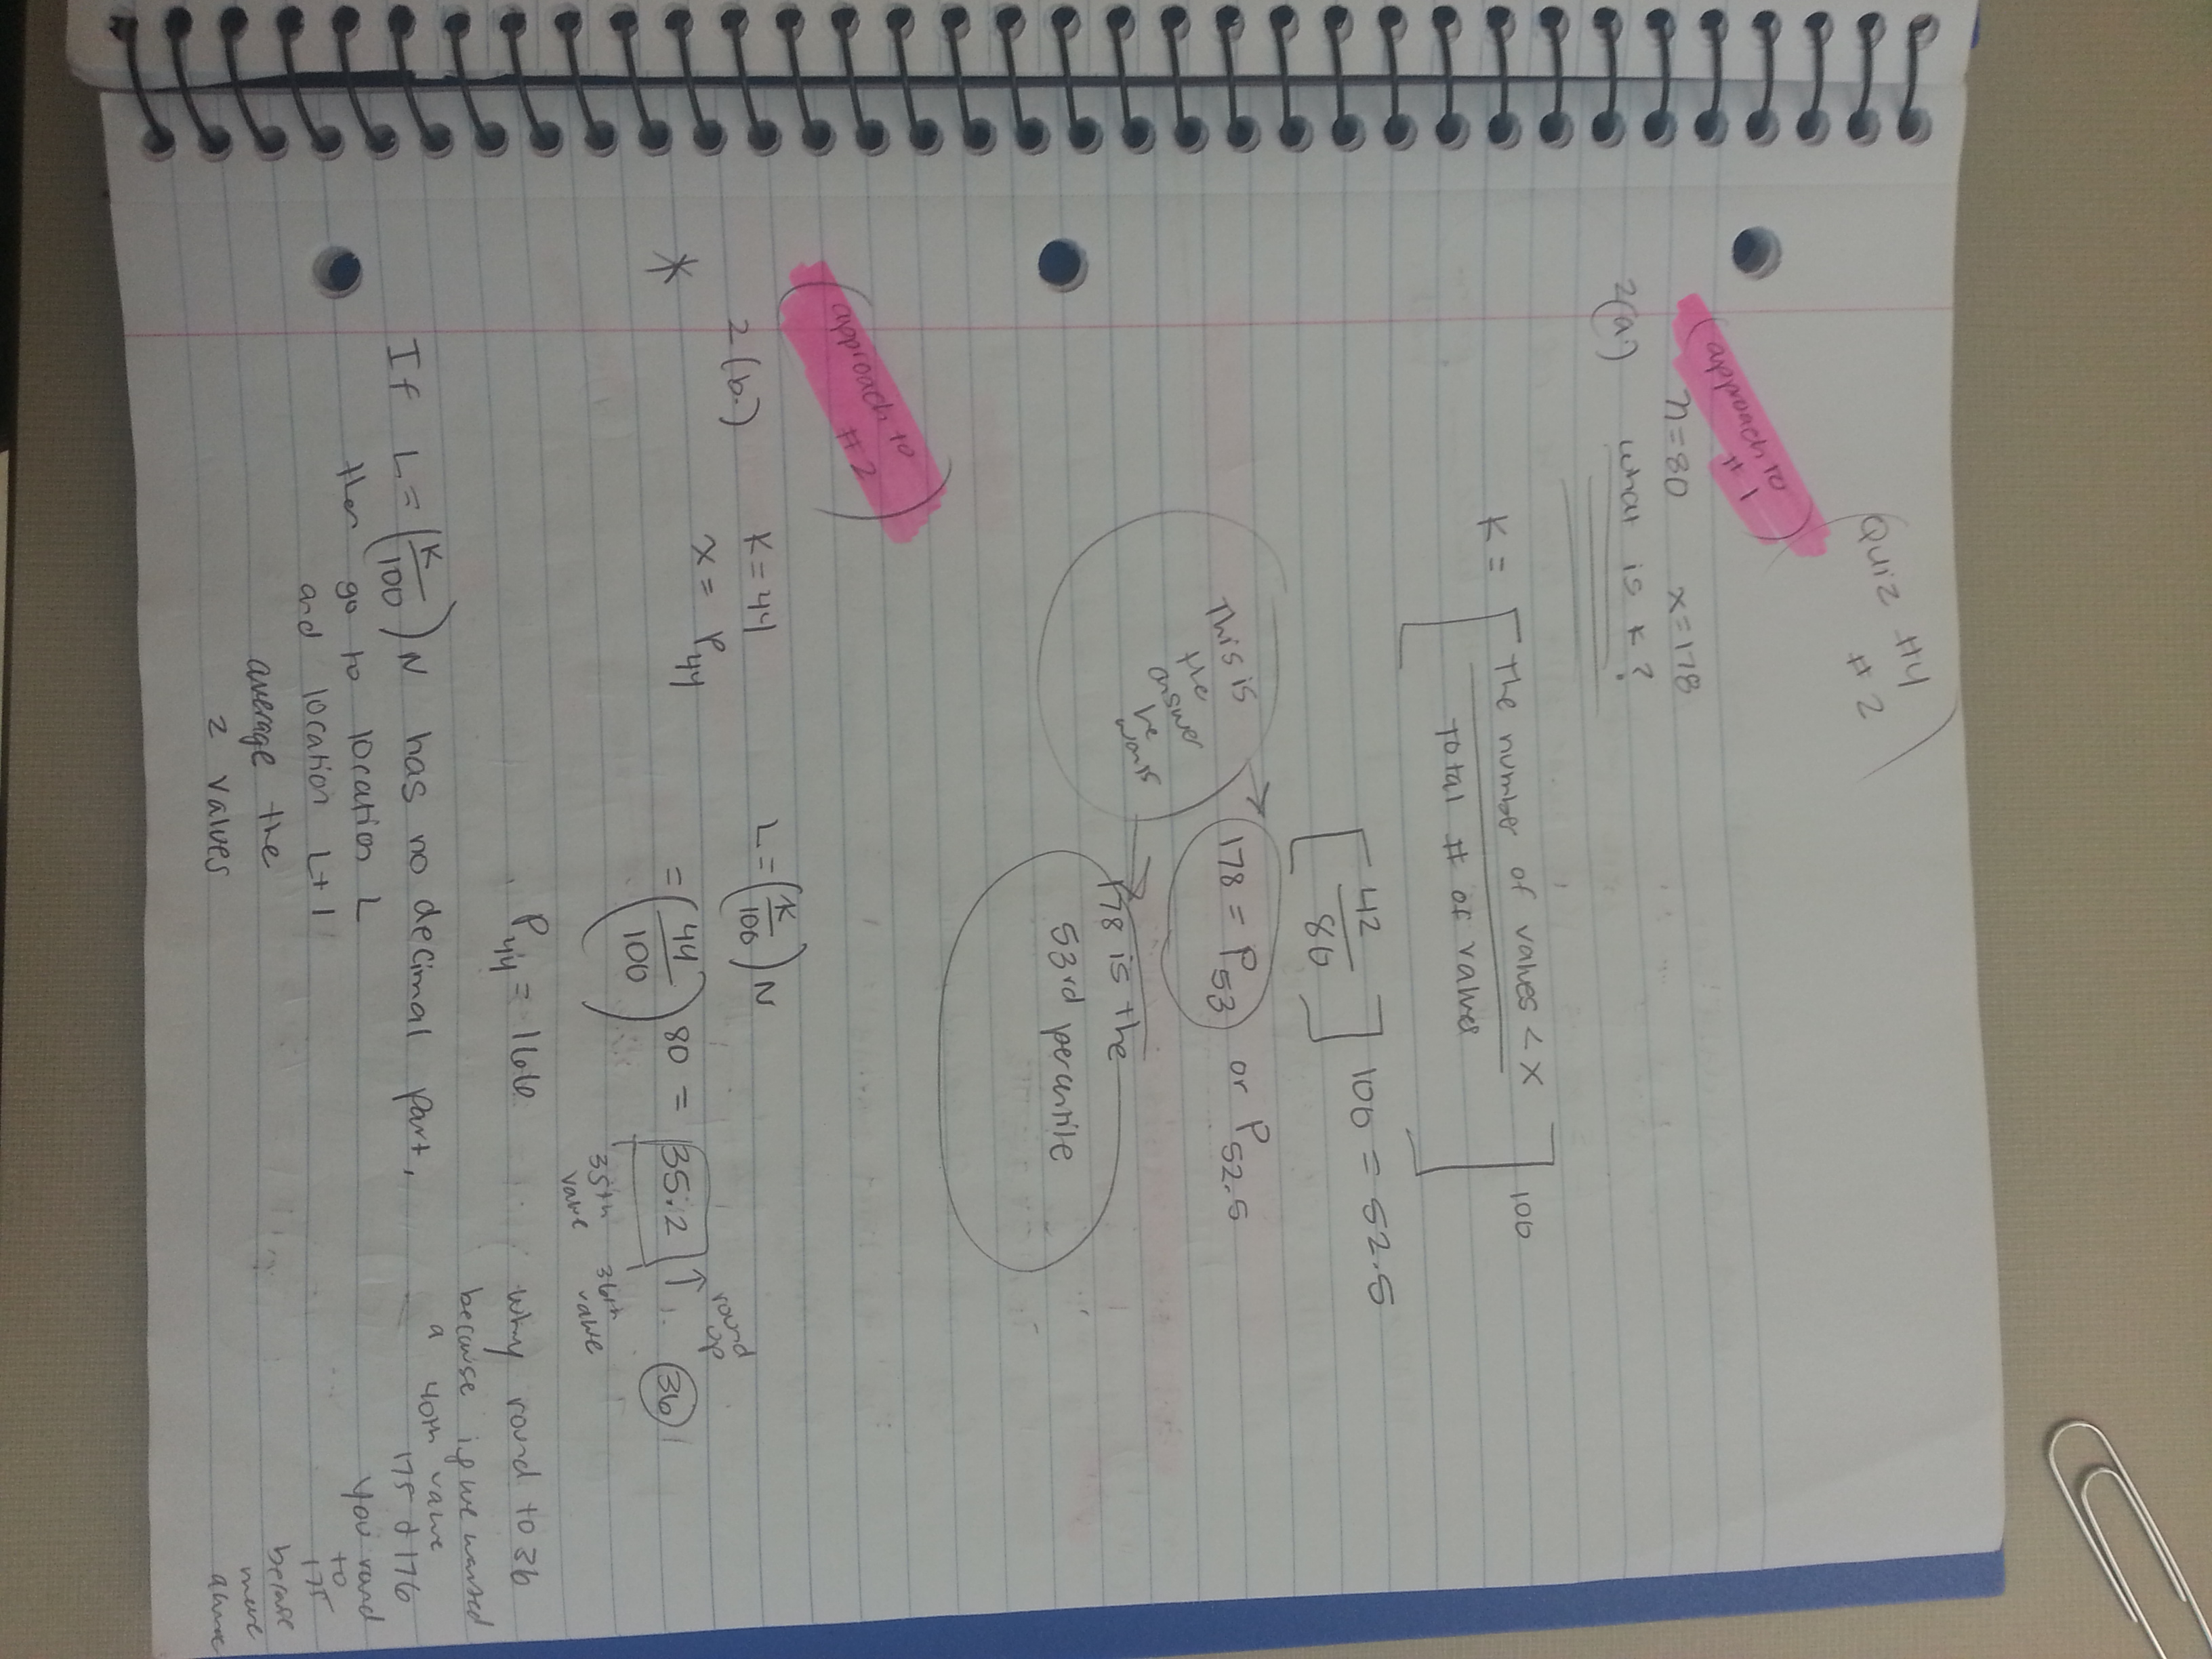 Quiz #4
# 2
(approach to
# 1)
n=80 x=178
2(a.) what is k?
K = [ The number of values < x / Total # of values ] 100
[ 42 / 80 ] 100 = 52.5
This is
the
answer
he
wants
178 = P53 or P52.5
178 is the
53rd percentile
(approach to
# 2)
2-(b.) K=44
x = P44
L = (K/100) N
= (44/100) 80 = 35.2
round
up
36
35th
value
36th
value
P44 = 166
why round to 36
because if we wanted
a 40th value
175 & 176
you round
to
175
* If L = (K/100) N has no decimal part,
then go to location L
and location L+1
average the
2 values